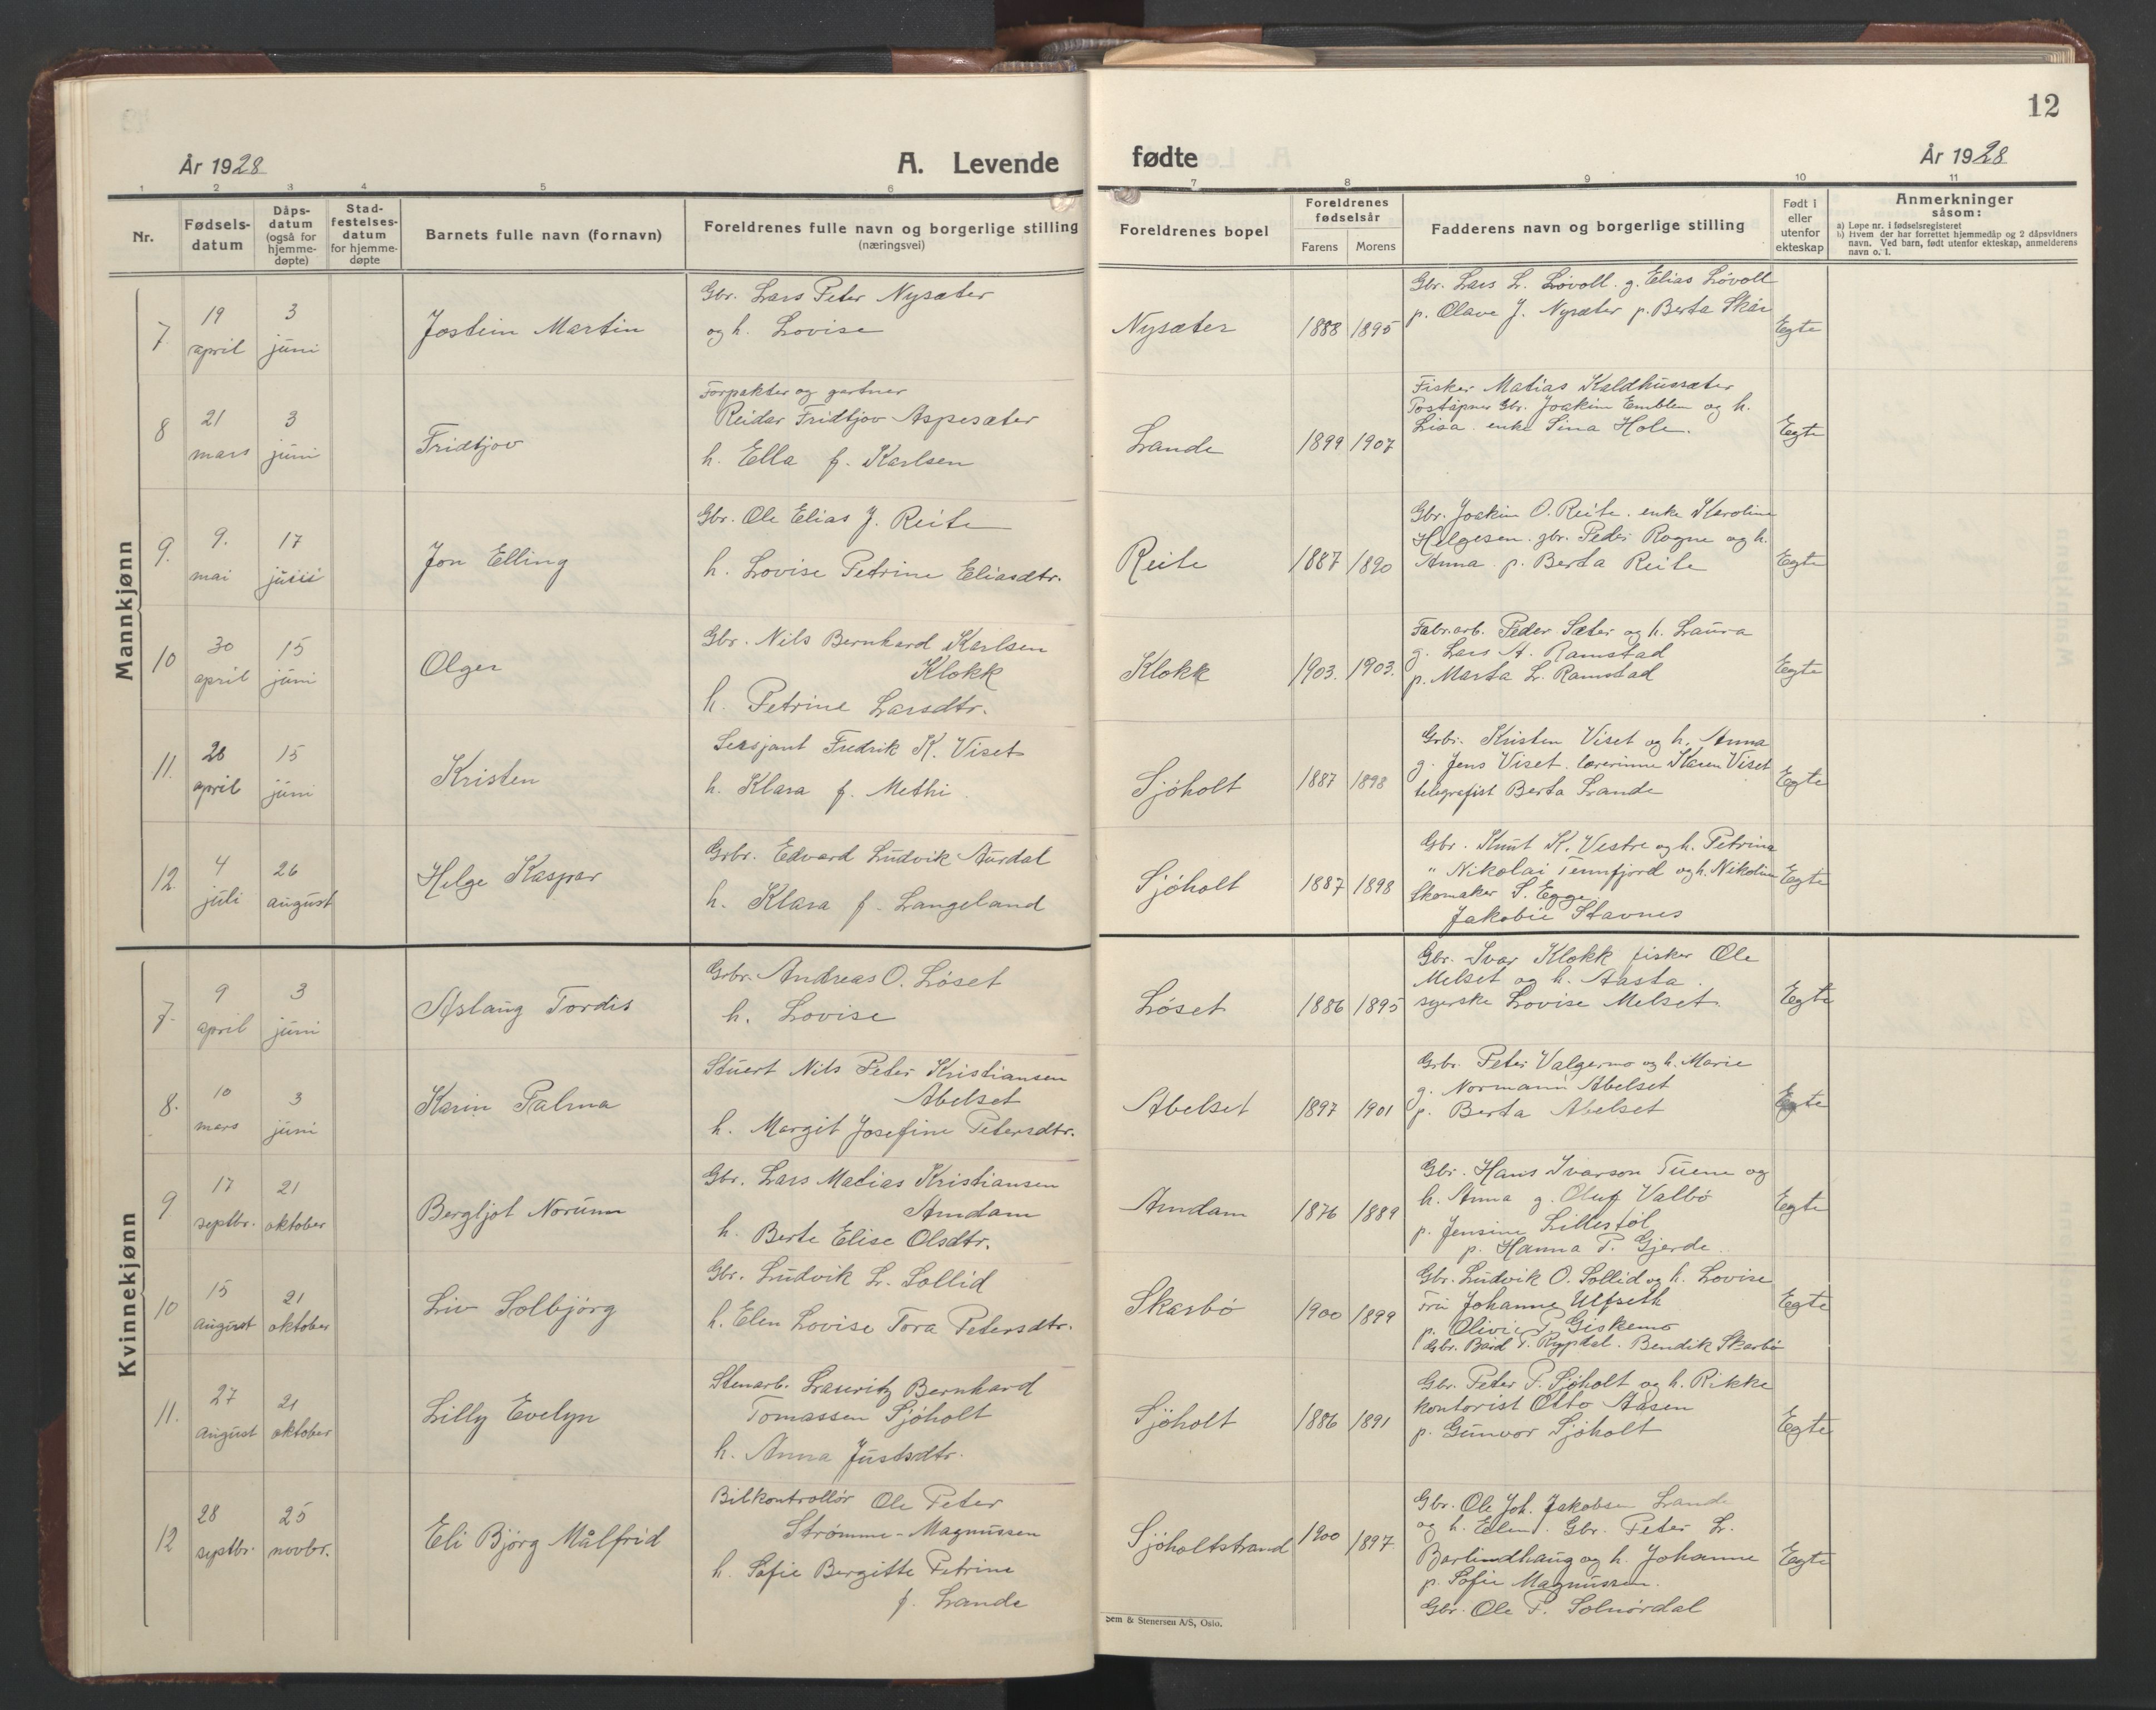 12
År 1928
A. Levende
fødte
År 1928
1 2 3 4 5 6 7 8 9 10 11
Nr.
Fødsels-
datum
Dåps-
datum
(også for
hjemme-
døpte)
Stad-
festelses-
datum
for hjemme-
døpte
Barnets fulle navn (fornavn)
Foreldrenes fulle navn og borgerlige stilling
(næringsvei)
Foreldrenes bopel
Foreldrenes
fødselsår
Farens
Morens
Fadderens navn og borgerlige stilling
Født i
eller
utenfor
ekteskap
Anmerkninger
såsom:
a) Løpe nr. i fødselsregisteret
b) Hvem der har forrettet hjemmedåp og 2 dåpsvidners
navn. Ved barn, født utenfor ekteskap, anmelderens
navn o. l.
Mannkjønn
7.
19
april
3
juni
Jostein Martin
Gbr. Lars Peter Nysæter
og h. Lovise
Nysæter
1888
1895
Gbr. Lars L. Løvoll. g. Elias Løvoll
p. Olave J. Nysæter p. Berta Skår
Egte
8
21
mars
3
juni
Fridtjov
Forpakter og gartner
Reidar Fridtjov Aspesæter
h. Ella f. Karlsen
Lande
1899
1907
Fisker Matias Kaldhussæter
Poståpner Gbr. Joakim Emblem og h.
Lisa. enke Sina Hole.
Egte
9.
9.
mai
17
juni
Jon Elling
Gbr. Ole Elias J. Reite
h. Lovise Petrine Eliasdtr.
Reite
1887
1890
Gbr. Joakim O. Reite. enke Karoline
Helgesen. gbr. Peder Rogne og h.
Anna. p. Berta Reite
Egte
10
30
april
15
juni
Olger
Gbr. Nils Bernhard Karlsen
Klokk
h. Petrine Larsdtr.
Klokk
1903.
1903.
Fabr.arb. Peder Sæter og h. Laura
g. Lars A. Ramstad
p. Marta L. Ramstad
Egte
11.
26
april
15
juni
Kristen
Sersjant Fredrik K. Viset
h. Klara f. Methi
Sjöholt
1887
1898
Grbr. Kristen Viset og h. Anna
g. Jens Viset. lærerinne Karen Viset
telegrafist Berta Lande
Egte
12.
4
juli
26
august
Helge Kaspar
Grbr. Edvard Ludvik Aurdal
h. Klara f. Langeland
Sjöholt
1887
1898
Gbr. Knut K. Vestre og h. Petrina
" Nikolai Tennfjord og h. Nikoline
Skomaker S. Egge
Jakobie Stavnes
Egte
Kvinnekjønn
7.
9
april
3
juni
Aslaug Tordis
Grbr. Andreas O. Løset
h. Lovise
Løset
1886
1895
Gbr. Ivar Klokk fisker Ole
Melset og h. Aasta.
syerske Lovise Melset.
Egte
8.
10
mars
3
juni
Karin Palma
Stuert Nils Peter Kristiansen
Abelset
h. Margit Josefine Petersdtr.
Abelset
1897
1901
Grbr. Peter Valgermo og h. Marie
g. Normann Abelset
p. Berta Abelset
Egte
9
17
septbr.
21
oktober
Bergljot Norunn
Gbr. Lars Matias Kristiansen
Amdam
h. Berte Elise Olsdtr.
Amdam
1876
1889
Gbr. Hans Ivarson Tuene og
h. Anna g. Oluf Valbö
p. Jensine Lillestöl
p. Hanna P. Gjerde.
Egte
10
15
august
21
oktober
Liv Solbjörg
Gbr. Ludvik L. Sollid
h. Elen Lovise Tora Petersdtr.
Skarbö
1900
1899
Gbr. Ludvik O. Sollid og h. Lovise
Fru Johanne Ulfseth
p. Olivie P. Giskemo
Gbr. Bård P. Rypdal. Bendik Skarbö
Egte
11.
27
august
21
oktober
Lilly Evelyn
Stenarb. Lauritz Bernhard
Tomassen Sjöholt
h. Anna Justsdtr.
Sjöholt
1886
1891
Gbr. Peter P. Sjöholt og h. Rikke
kontorist Otto Aasen
p. Gunvor Sjöholt
Egte
12
28
septbr.
25
novbr.
Eli Björg Målfrid
Bilkontrollör Ole Peter
Strømme-Magnussen
h. Sofie Bergitte Petrine
f. Lande
Sjöholtstrand
1900
1897.
Gbr. Ole Joh. Jakobsen Lande
og h. Elen. Gbr. Peter L.
Barlindhaug og h. Johanne
p. Sofie Magnussen.
Gbr. Ole P. Solnørdal
Egte
Sem & Stenersen A/S, Oslo.